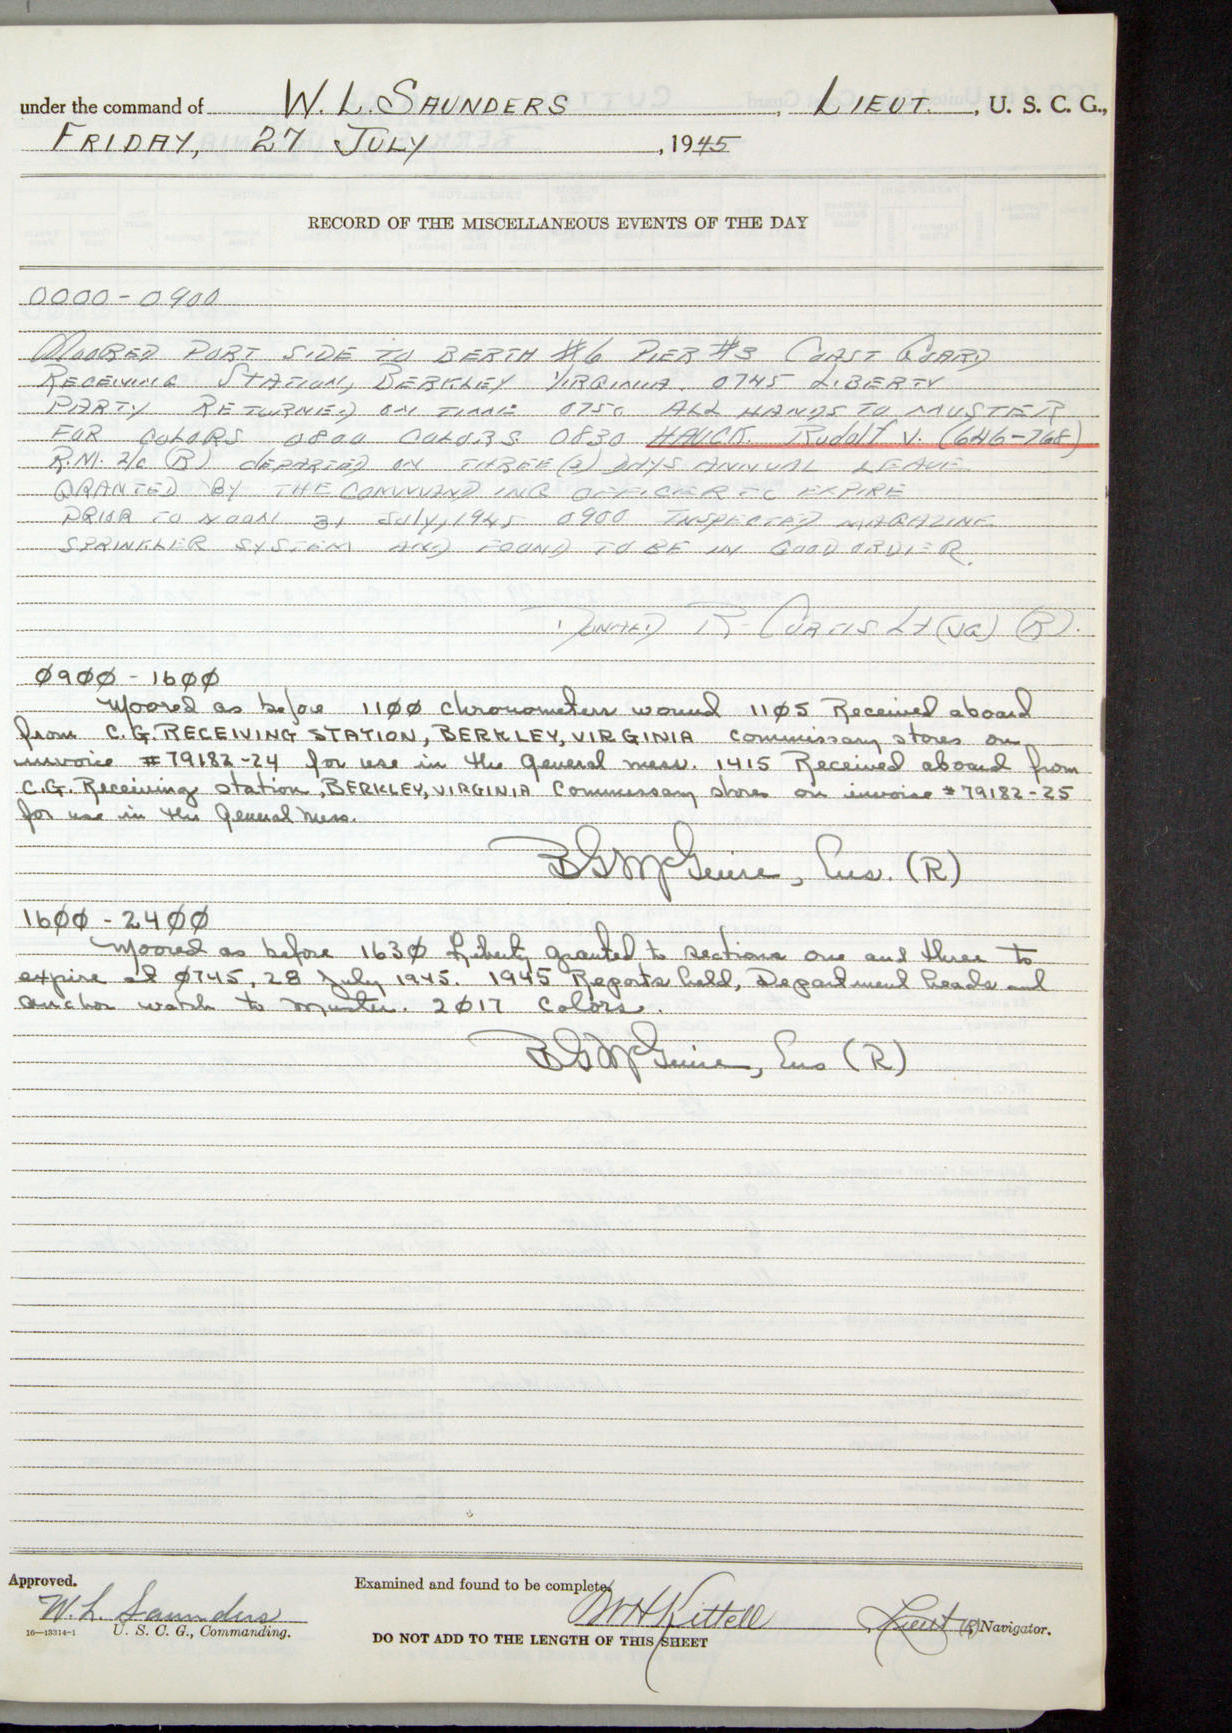 under the command of W. L. SAUNDERS, LIEUT., U. S. C. G.,
FRIDAY, 27 JULY, 1945
RECORD OF THE MISCELLANEOUS EVENTS OF THE DAY
0000-0900
MOORED PORT SIDE TO BERTH #6 PIER #3 COAST GUARD
RECEIVING STATION, BERKLEY, VIRGINIA. 0745 LIBERTY
PARTY RETURNED ON TIME 0750 ALL HANDS TO MUSTER
FOR COLORS 0800 COLORS 0830 HAUCK, Rudolf V. (646-768)
R.M. 2/c (R) DEPARTED ON THREE (3) DAYS ANNUAL LEAVE
GRANTED BY THE COMMANDING OFFICER TO EXPIRE
PRIOR TO NOON 31 July, 1945 0900 INSPECTED MAGAZINE
SPRINKLER SYSTEM AND FOUND TO BE IN GOOD ORDER.
R. CURTIS Lt (JG) (R).
0900-1600
Moored as before 1100 chronometers wound 1105 Received aboard
from C.G. RECEIVING STATION, BERKLEY, VIRGINIA commissary stores on
invoice #79182-24 for use in the general mess. 1415 Received aboard from
C.G. Receiving station, BERKLEY, VIRGINIA Commissary stores on invoice #79182-25
for use in the General Mess.
BG McGuire, Ens. (R)
1600-2400
Moored as before 1630 Liberty granted to sections one and three to
expire at 0745, 28 July 1945. 1945 Reports held, Department heads and
anchor watch to muster. 2017 Colors.
BG McGuire, Ens (R)
Approved.
W. L. Saunders
U. S. C. G., Commanding.
16—13314-1
Examined and found to be complete.
WH Kittell, Lieut (R) Navigator.
DO NOT ADD TO THE LENGTH OF THIS SHEET